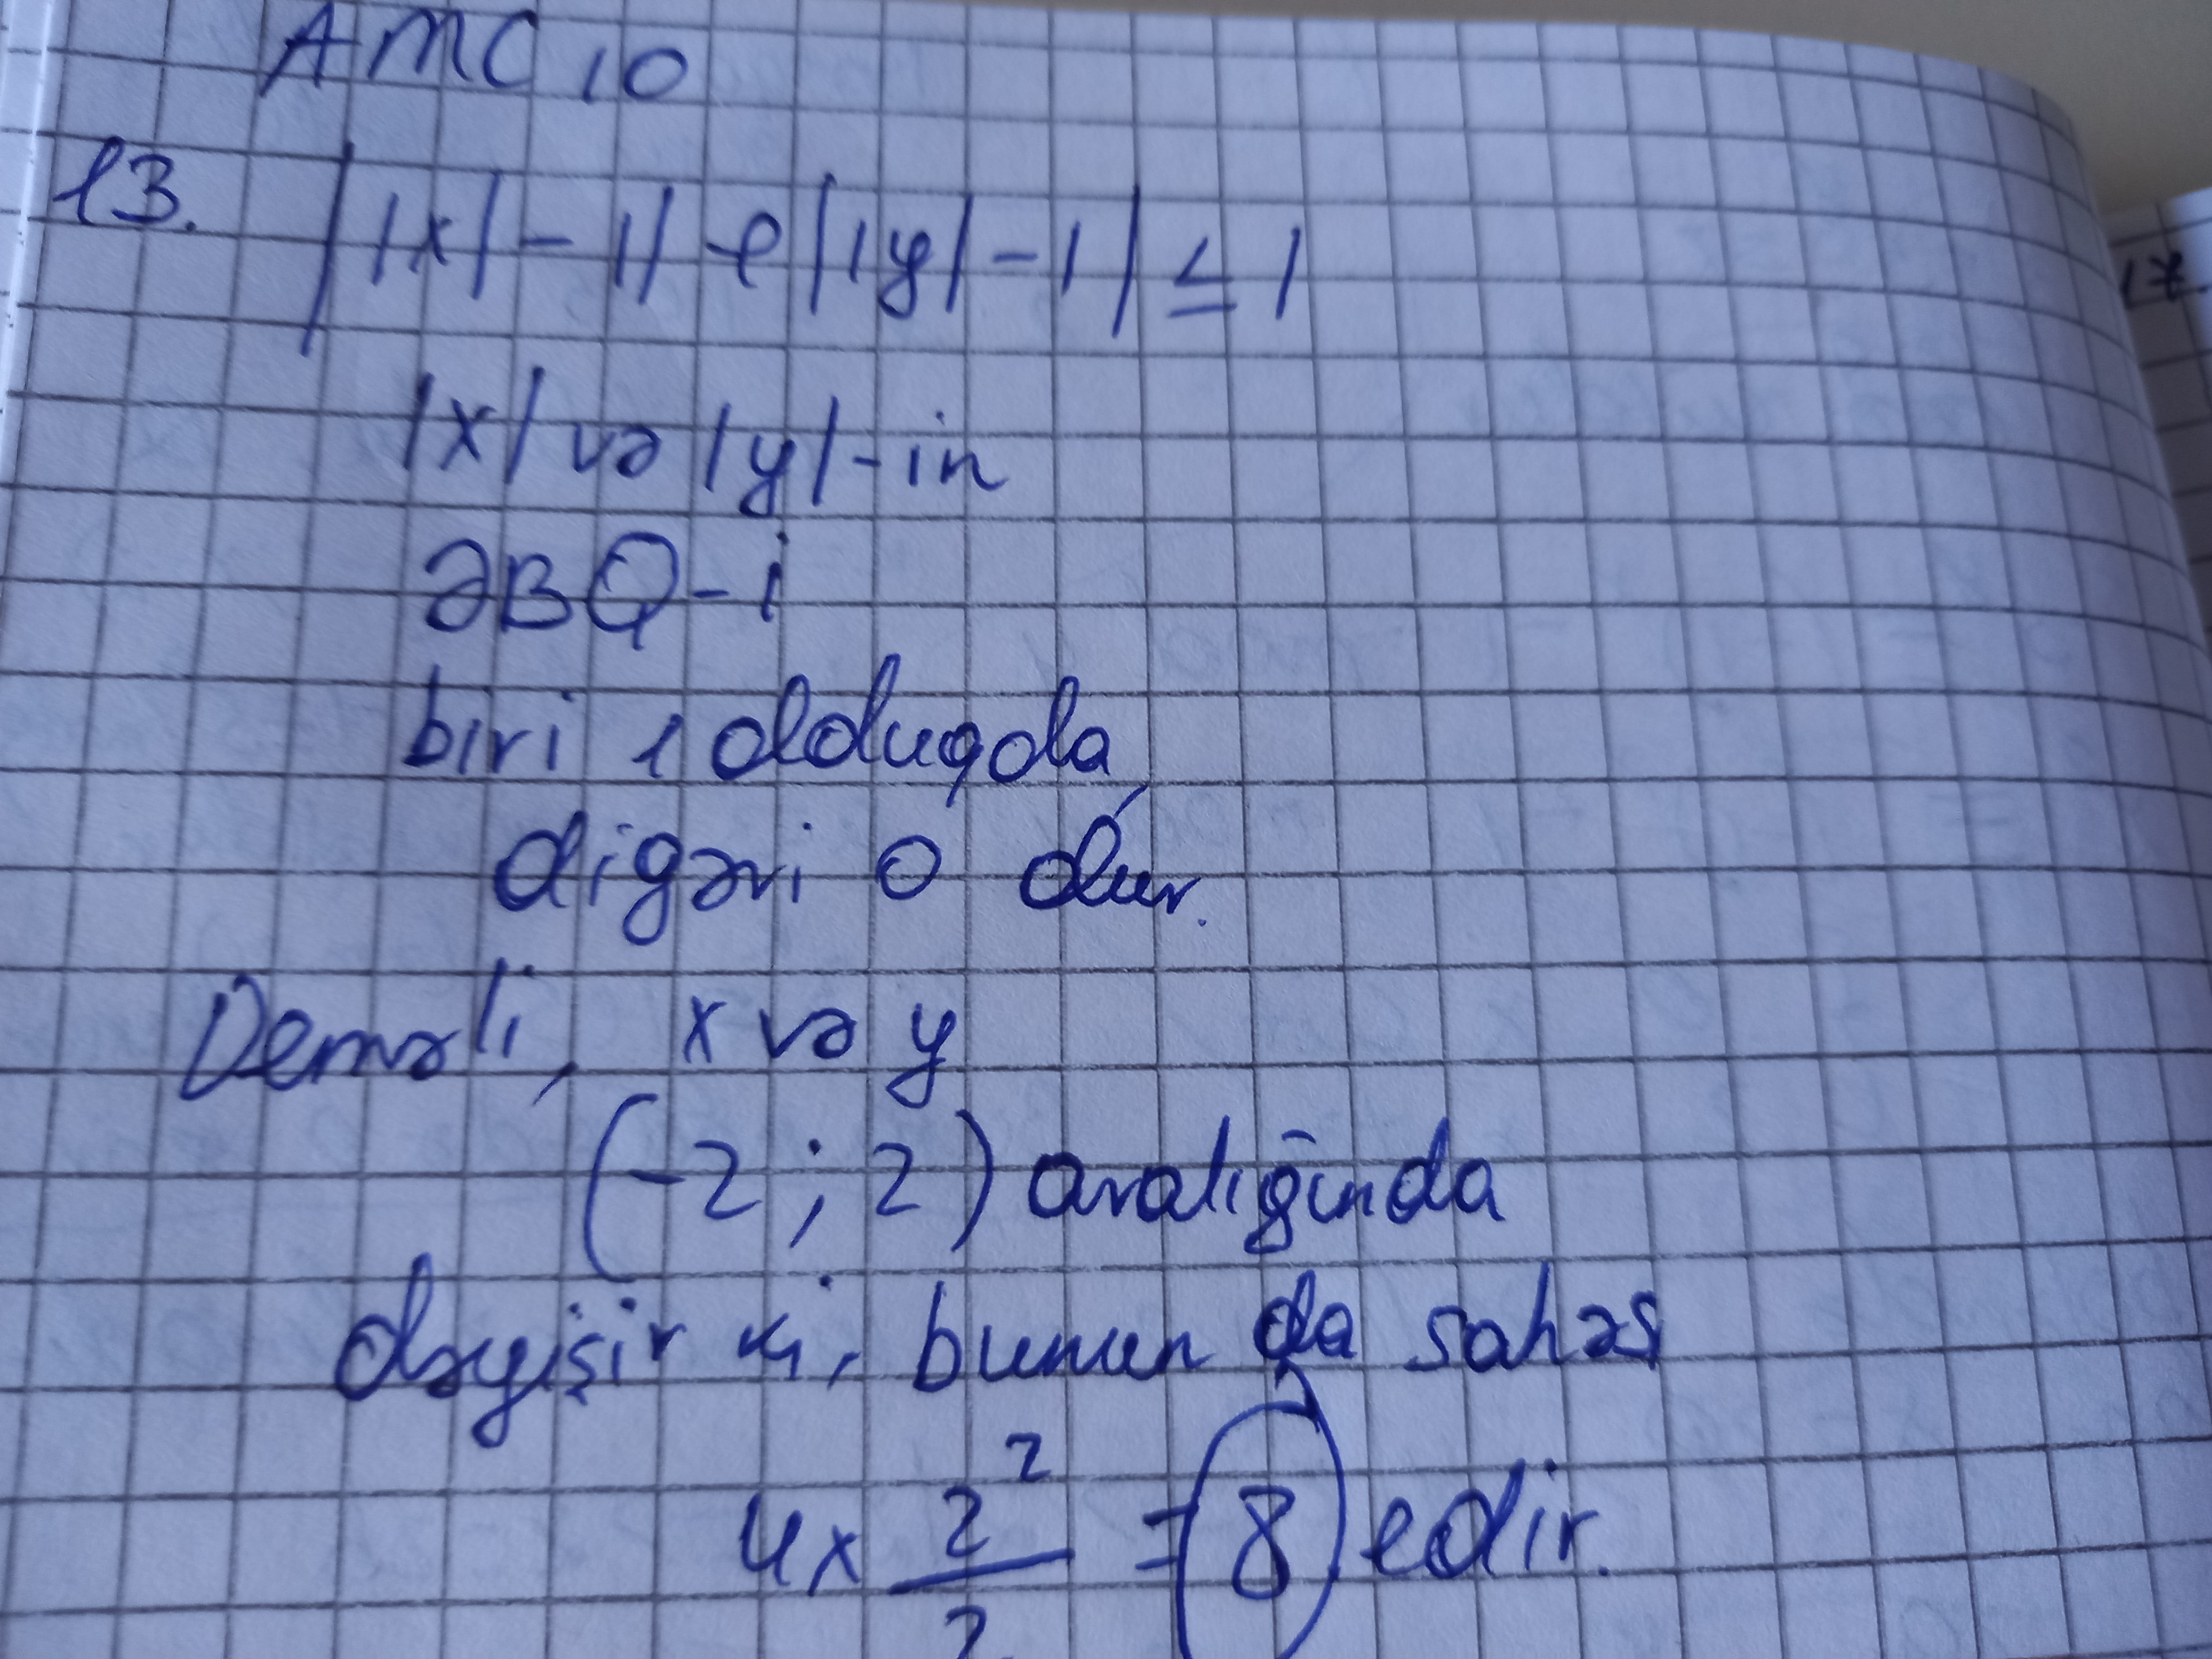 AMC 10
13. ||x|-1|+||y|-1|≤1
|x| və |y|-in
ƏBQ-i
biri 1 olduqda,
digəri 0 olur.
Deməli, x və y
(-2; 2) aralığında
dəyişir ki, bunun da sahəsi
4x 2²/2 = 8 edir.